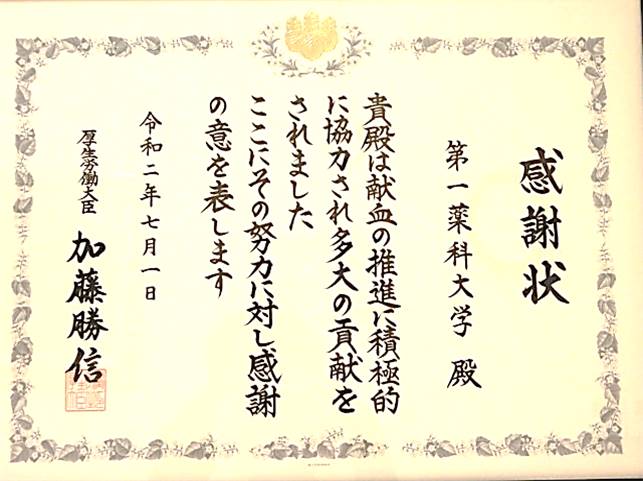 感謝状
第一薬科大学 殿
貴殿は献血の推進に積極的
に協力され多大の貢献を
されました
ここにその努力に対し感謝
の意を表します
令和二年七月一日
厚生労働大臣 加藤勝信